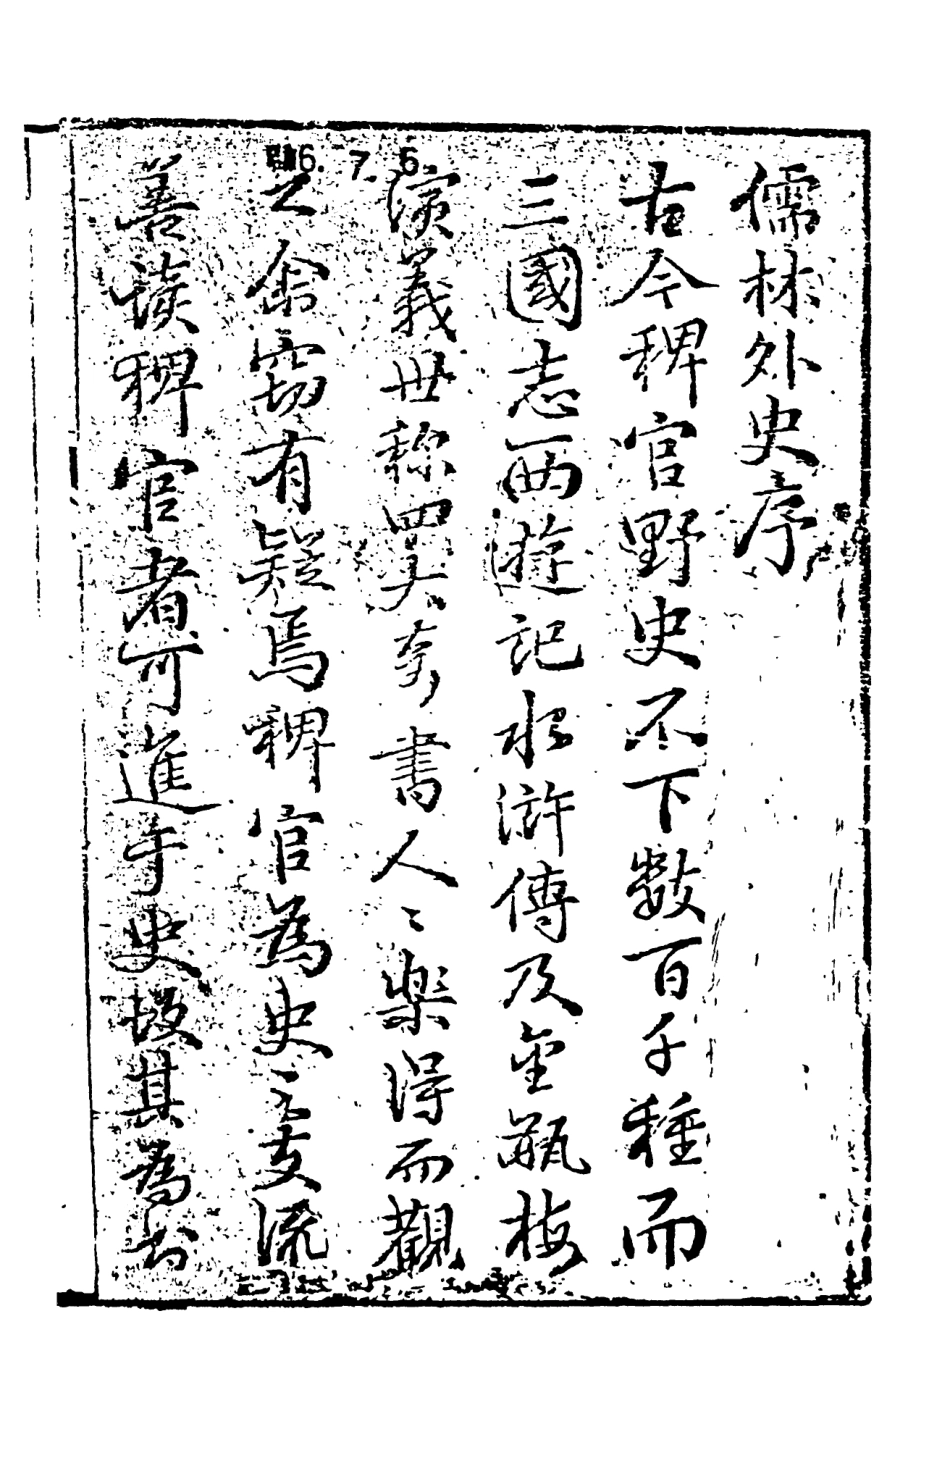 儒林外史序
古今稗官野史不下數百千種而
三國志西遊記水滸傳及金瓶梅
演義世稱四大奇書人々樂得而觀
之余竊有疑焉稗官為史之支流
善讀稗官者可進于史故其為書